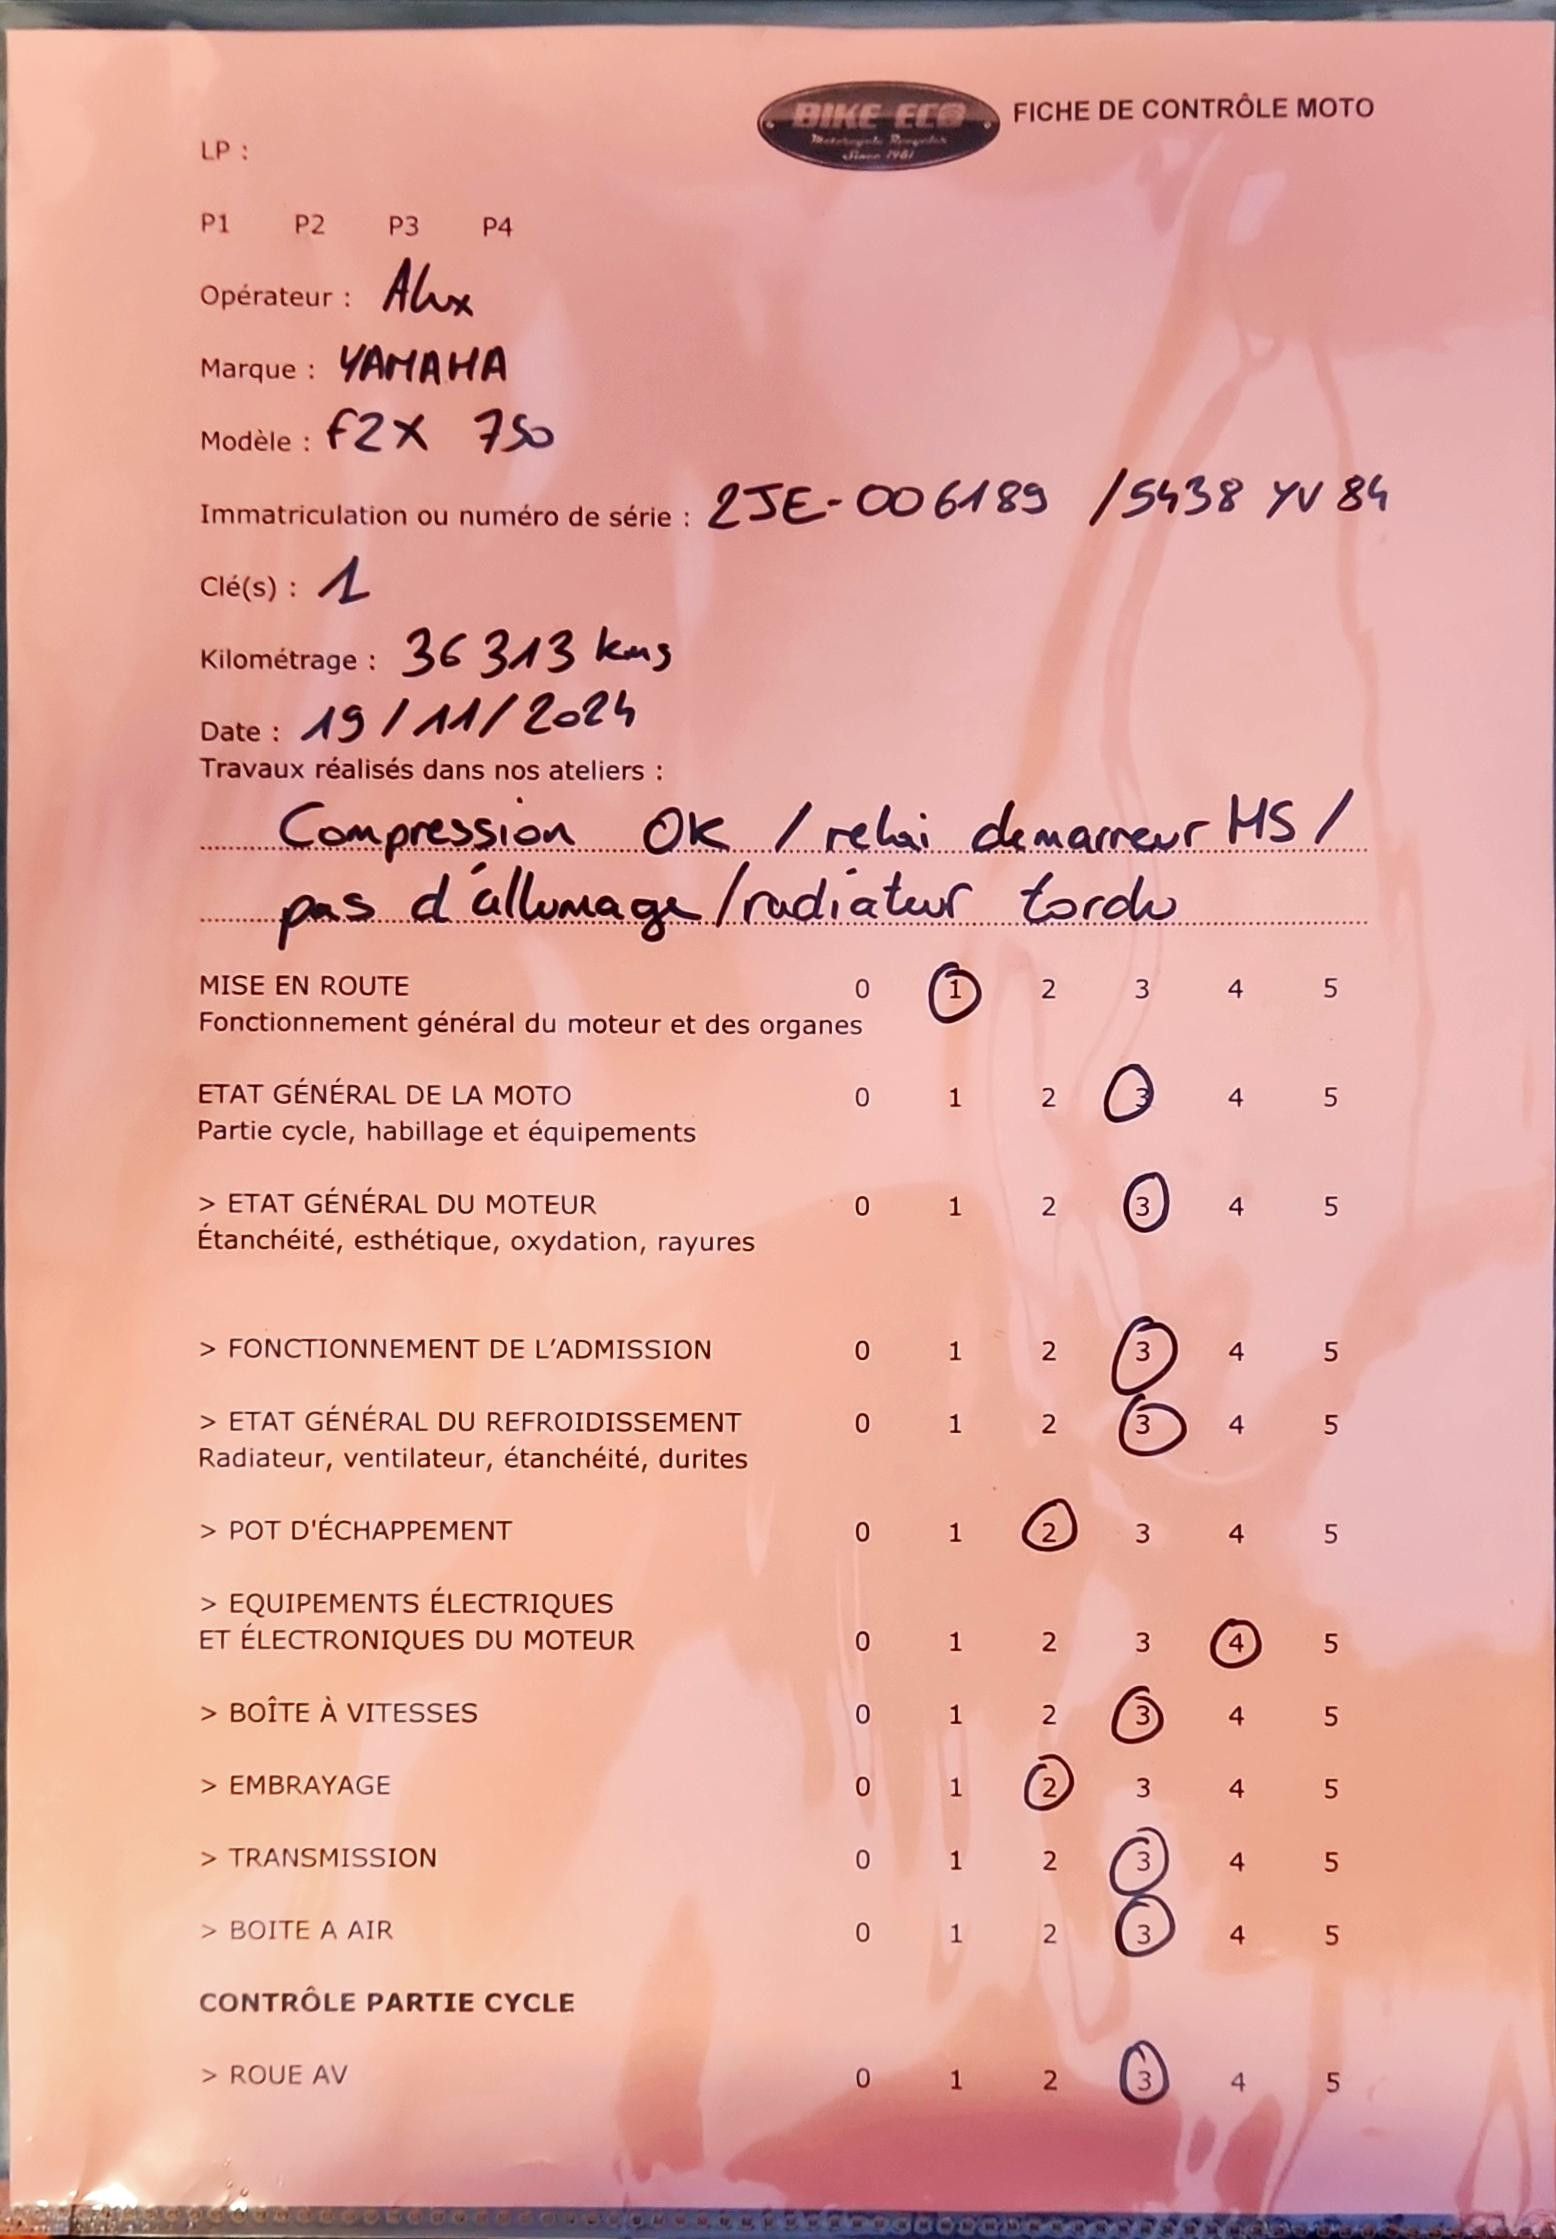 BIKE ECO
Motorcycle Recycler
Since 1981
FICHE DE CONTRÔLE MOTO
LP :
P1 P2 P3 P4
Opérateur : Alex
Marque : YAMAHA
Modèle : FZX 750
Immatriculation ou numéro de série : 2JE-006189 /5438 YV 84
Clé(s) : 1
Kilométrage : 36 313 kms
Date : 19/11/2024
Travaux réalisés dans nos ateliers :
Compression OK / relai demarreur HS /
pas d'allumage/radiateur tordu
MISE EN ROUTE 0 1 2 3 4 5
Fonctionnement général du moteur et des organes
ETAT GÉNÉRAL DE LA MOTO 0 1 2 3 4 5
Partie cycle, habillage et équipements
> ETAT GÉNÉRAL DU MOTEUR 0 1 2 3 4 5
Étanchéité, esthétique, oxydation, rayures
> FONCTIONNEMENT DE L'ADMISSION 0 1 2 3 4 5
> ETAT GÉNÉRAL DU REFROIDISSEMENT 0 1 2 3 4 5
Radiateur, ventilateur, étanchéité, durites
> POT D'ÉCHAPPEMENT 0 1 2 3 4 5
> EQUIPEMENTS ÉLECTRIQUES
ET ÉLECTRONIQUES DU MOTEUR 0 1 2 3 4 5
> BOÎTE À VITESSES 0 1 2 3 4 5
> EMBRAYAGE 0 1 2 3 4 5
> TRANSMISSION 0 1 2 3 4 5
> BOITE A AIR 0 1 2 3 4 5
CONTRÔLE PARTIE CYCLE
> ROUE AV 0 1 2 3 4 5